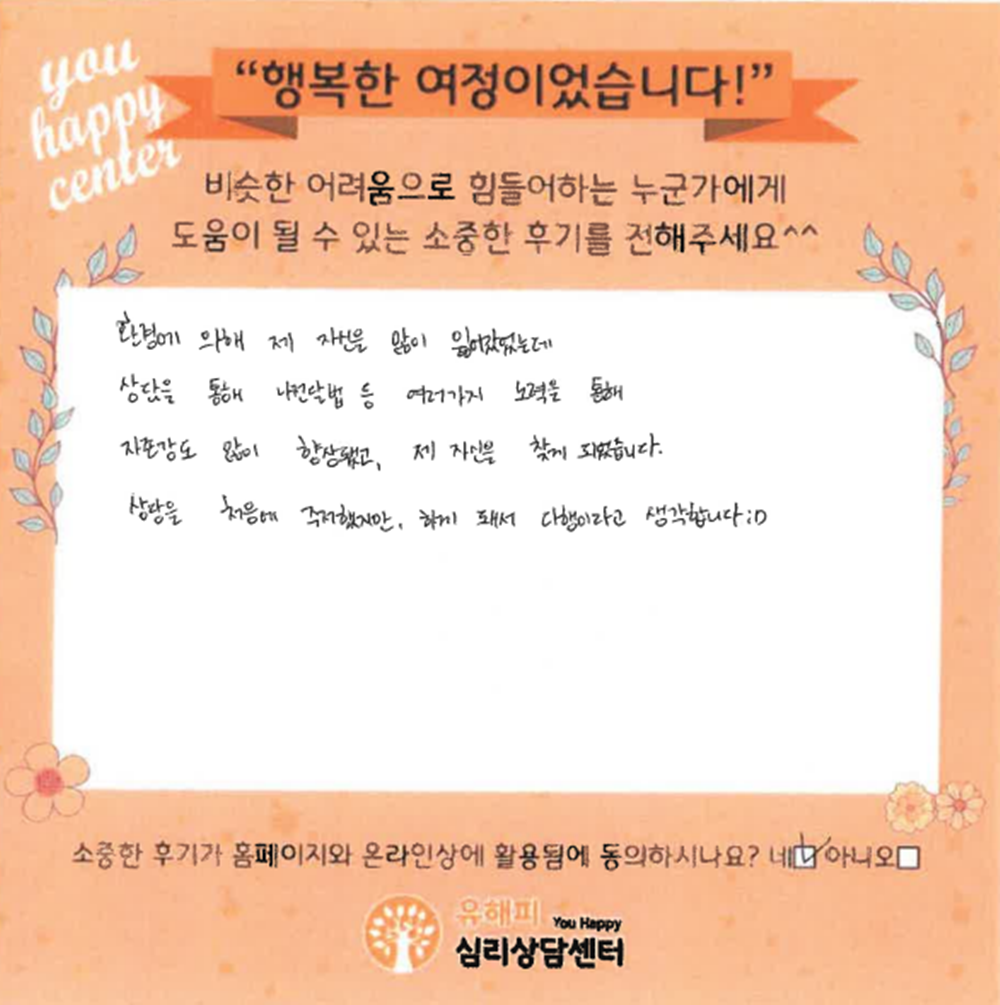 you
happy
center
“행복한 여정이었습니다!”
비슷한 어려움으로 힘들어하는 누군가에게
도움이 될 수 있는 소중한 후기를 전해주세요^^
환경에 의해 제 자신을 많이 잃어갔었는데
상담을 통해 나전달법 등 여러가지 노력을 통해
자존감도 많이 향상됐고, 제 자신을 찾게 되었습니다.
상담을 처음에 주저했지만, 하게 돼서 다행이라고 생각합니다;D
소중한 후기가 홈페이지와 온라인상에 활용됨에 동의하시나요? 네 아니오
유해피 You Happy
심리상담센터